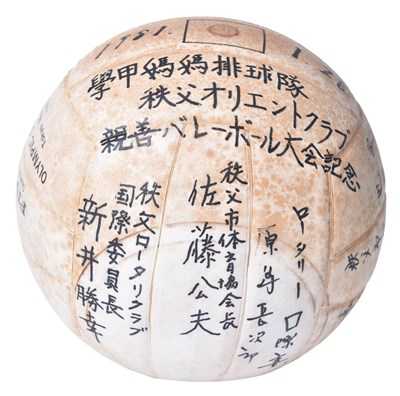 1981.
學甲媽媽排球隊
秩父オリエントクラブ
親善バレーボール大会記念
秩父市体育協会長
佐藤公夫
秩父ロータリクラブ
国際委員長
新井勝幸
ロータリー
原島長次郎
OLYMPIC